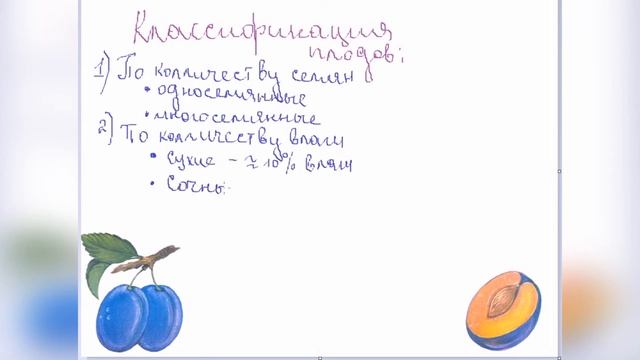 Классификация
плодов:
1) По колличеству семян
• односемянные
• многосемянные
2) По колличеству влаги
• сухие - ≈ 10% влаги
• Сочны